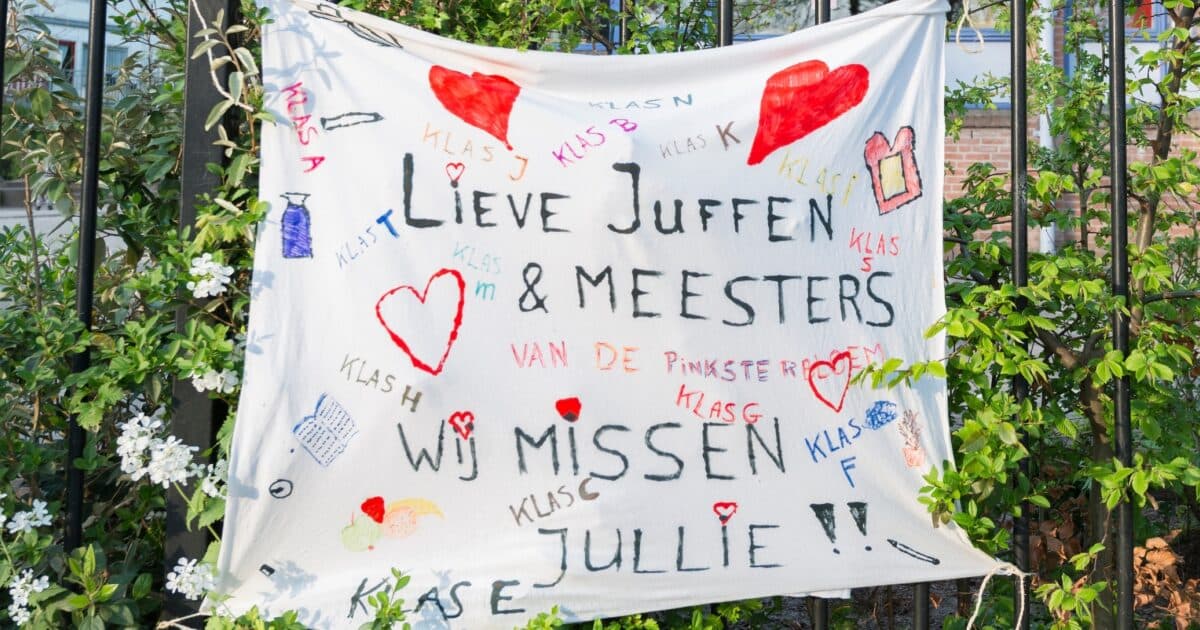 KLAS A
KLAS N
KLAS J
KLAS B
KLAS K
KLAS I
LIEVE JUFFEN
KLAS T
KLAS M
KLAS S
& MEESTERS
VAN DE PINKSTE
KLAS H
KLAS G
WIJ MISSEN
KLAS F
KLAS C
JULLIE !!
KLAS E